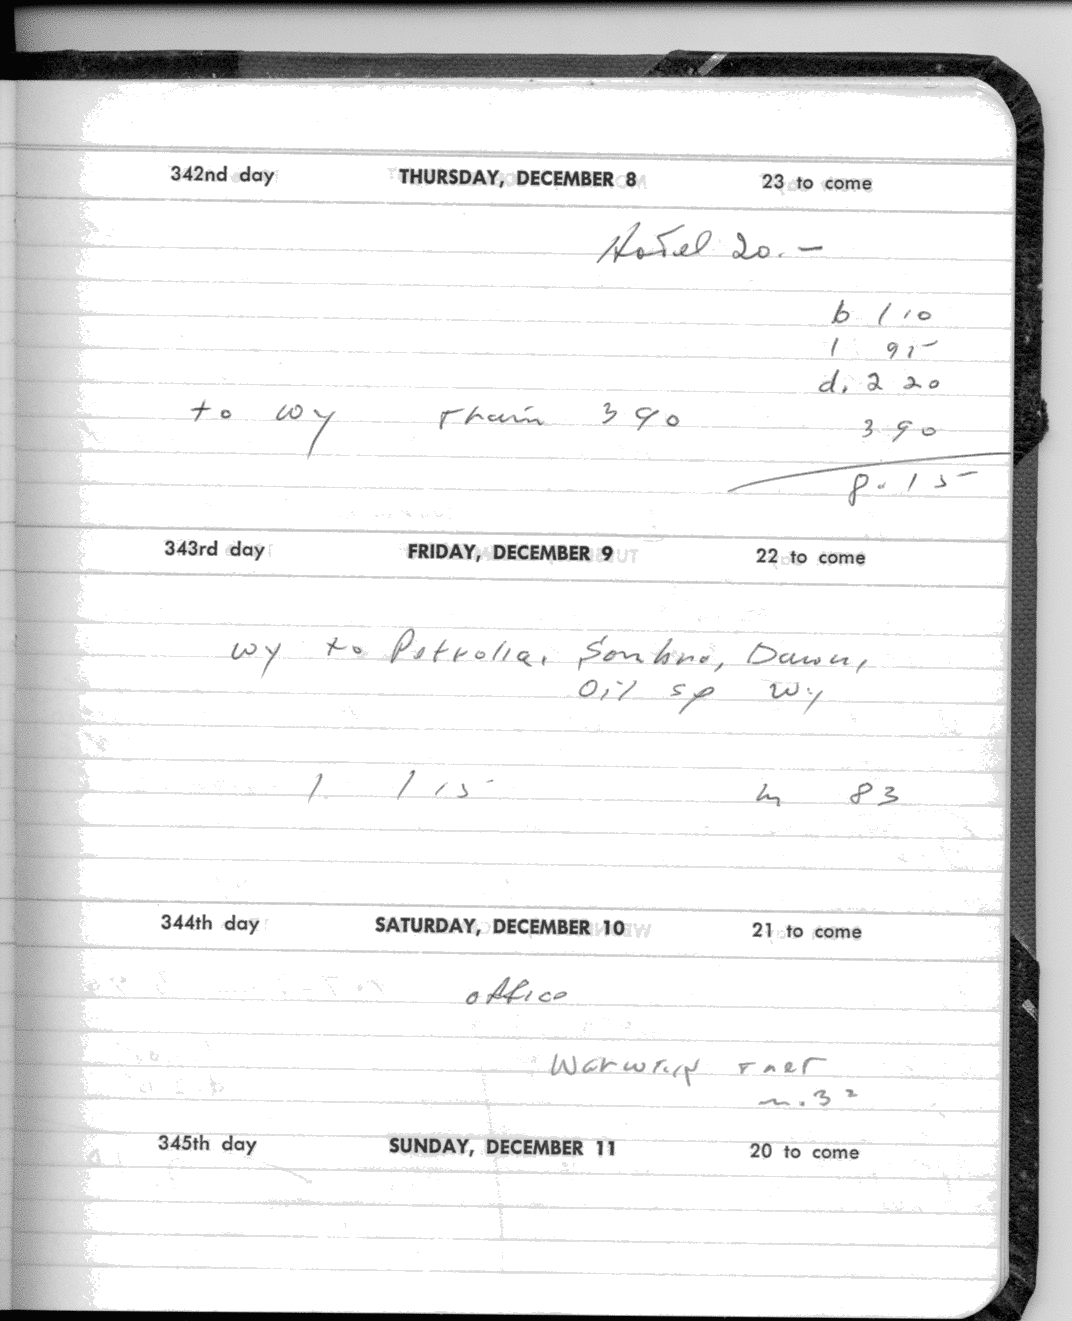 342nd day THURSDAY, DECEMBER 8 23 to come
Hotel 20.—
b 1 10
l 95
d. 2 20
to wy Train 3 90
3 90
8.15
343rd day FRIDAY, DECEMBER 9 22 to come
wy to Petrolia, Sombra, Dawn,
Oil sp wy
l 1 15 m 83
344th day SATURDAY, DECEMBER 10 21 to come
office
Warwick
m. 32
345th day SUNDAY, DECEMBER 11 20 to come